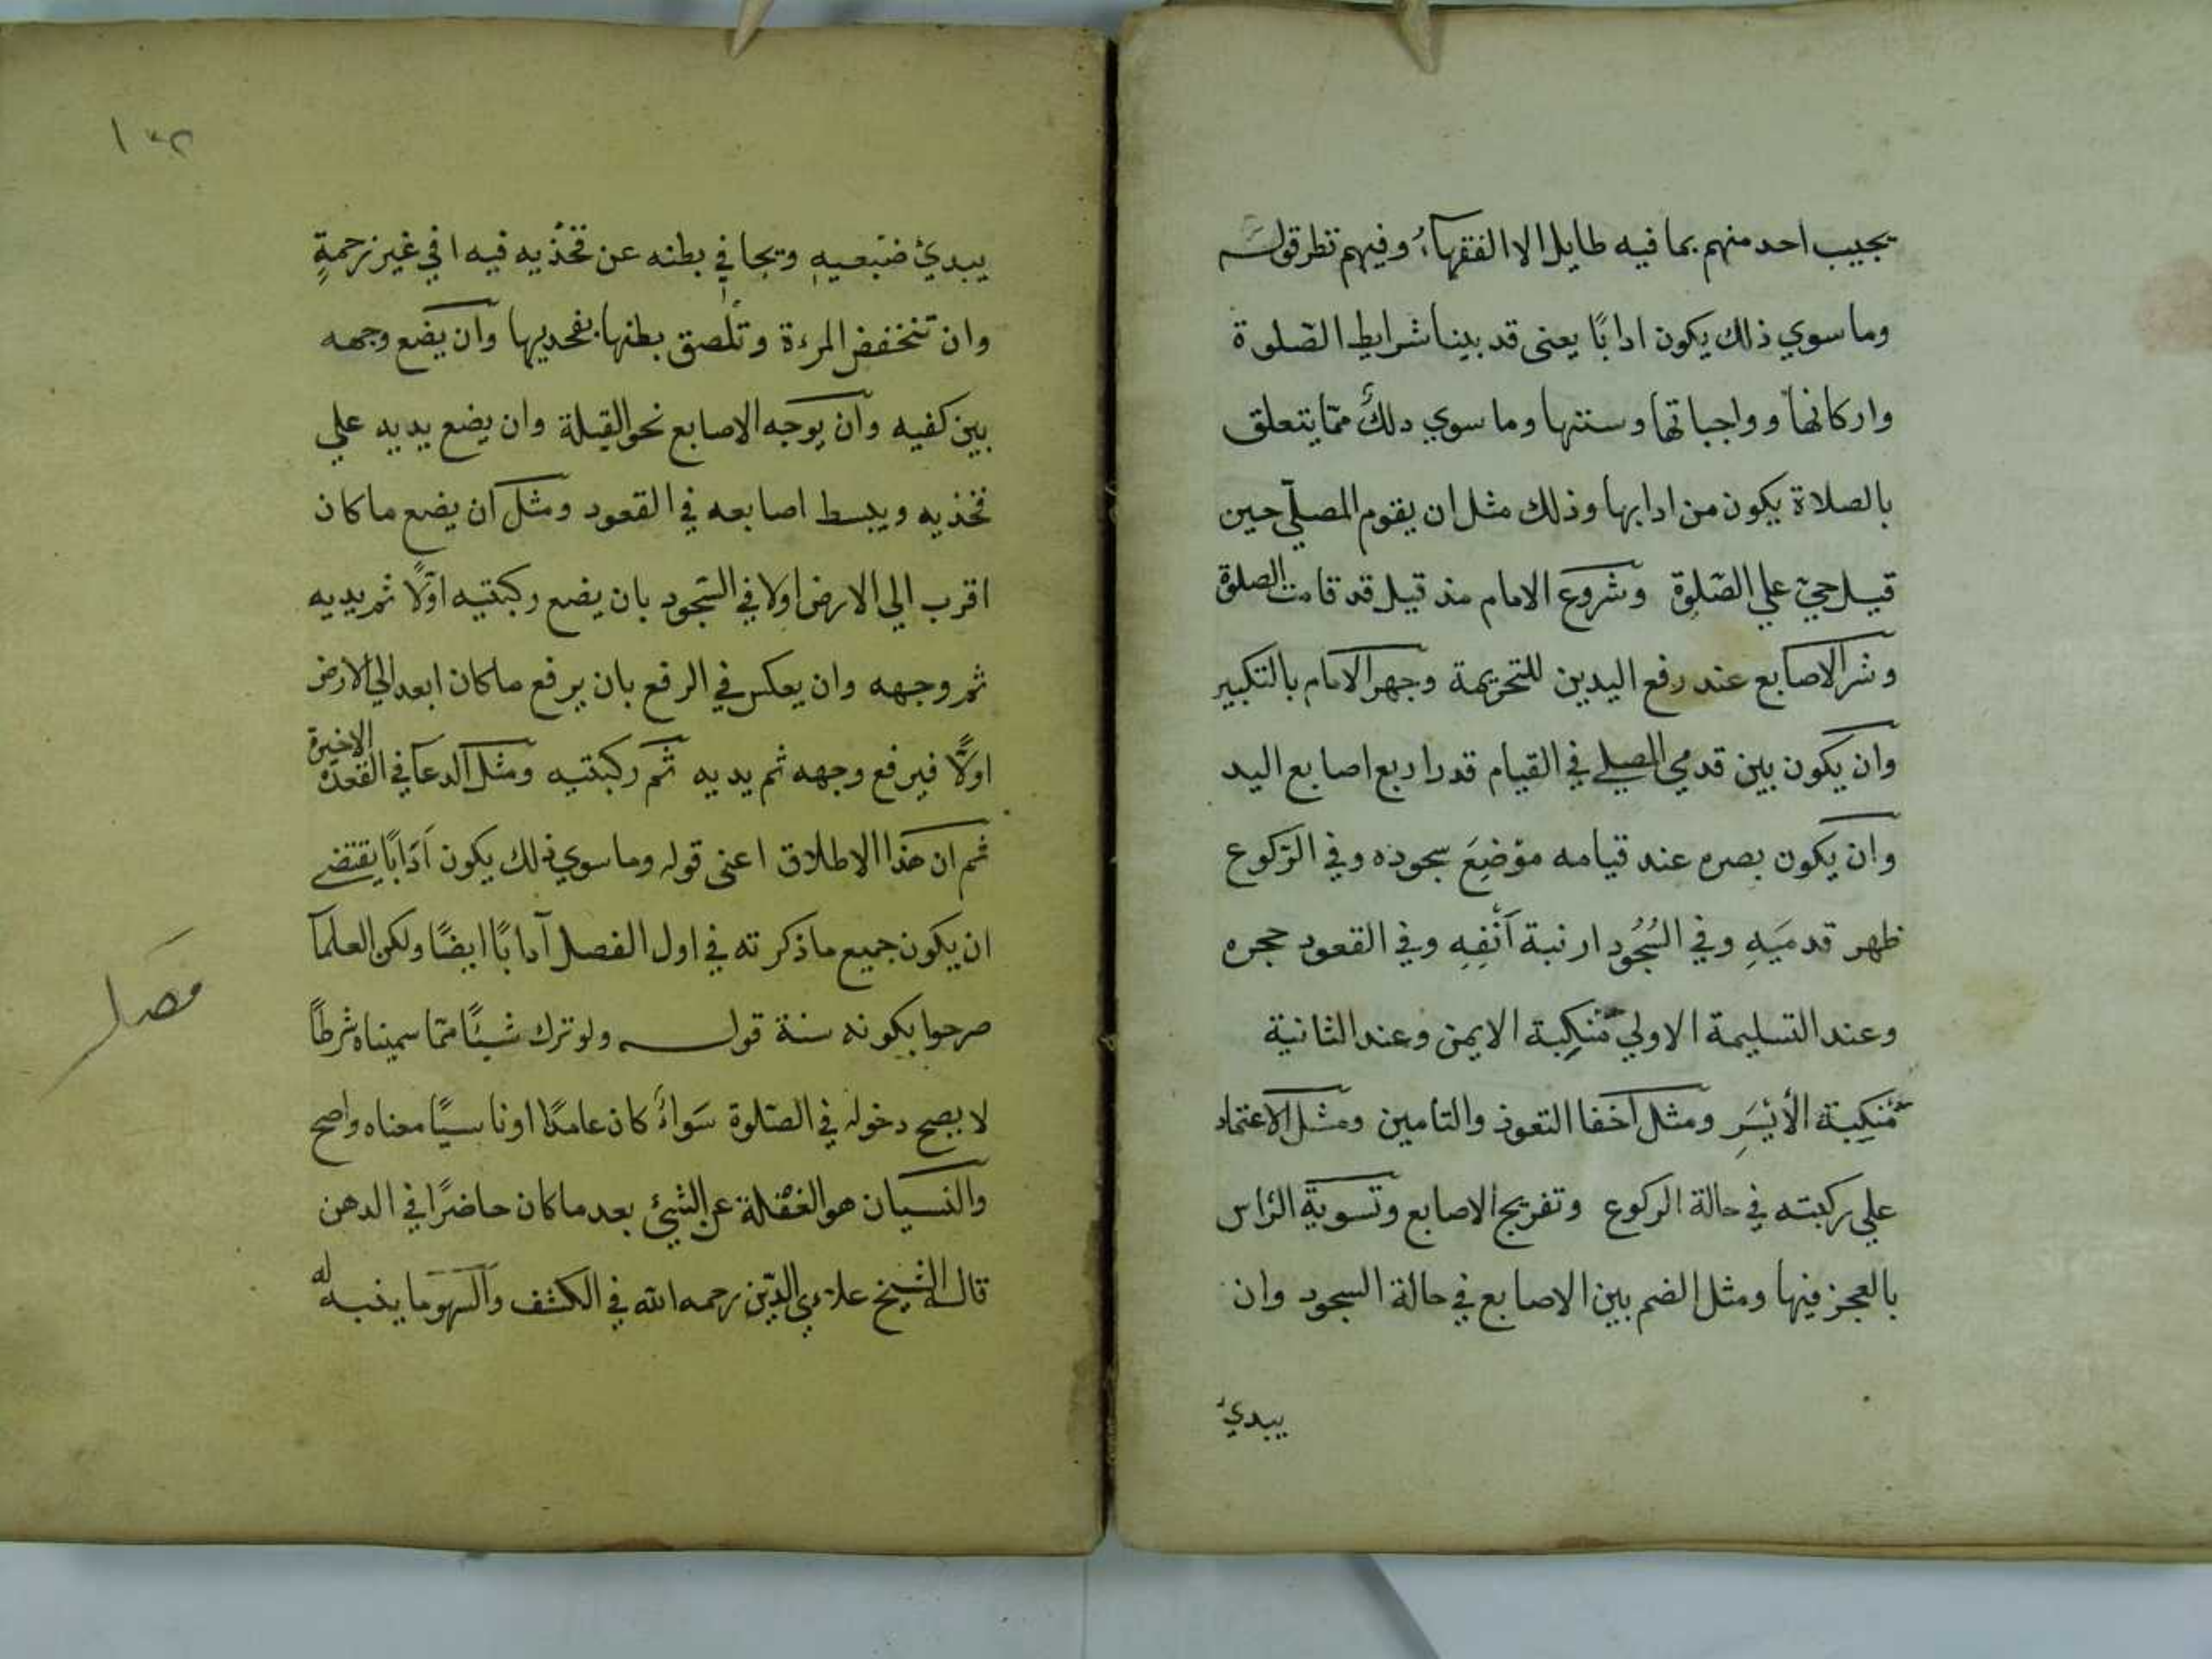 يجيب احد منهم بما فيه طايل الا الفقهاء وفيهم تطر قوله
وما سوي ذلك يكون ادابًا يعنى قد بينا شرايط الصّلوة
واركانها وواجباتها وسننها وما سوي دلك ممّا يتعلق
بالصلاة يكون من ادابها وذلك مثل ان يقوم المصلّي حين
قيل حيّ علي الصّلوة وشروع الامام مذ قيل قد قامت الصلوة
ونشر الاصابع عند رفع اليدين للتحريمة وجهر الامام بالتكبير
وان يكون بين قدمي المصلي في القيام قدر اربع اصابع اليد
وان يكون بصره عند قيامه موْضِعَ سجوده وفي الرّكوع
ظهر قدميَهِ وفي السُجُود ارنبة اَنْفِهِ وفي القعود حجره
وعند التسليمة الاولي مَنكِبة الايمن وعند الثانية
مَنكِبة الأيْسَرِ ومثل اخفا التعوذ والتامين ومثل الاعتماد
علي ركبته في حالة الركوع وتفريج الاصابع وتسوية الرّاس
بالعجز فيها ومثل الضم بين الاصابع في حالة السجود وان
يبديُ
١٣٢
يبديُ ضَبْعيهِ ويجافي بطنه عن فخُذيه فيه ا في غير زحمةٍ
وان تنخفض المرءة وتُلصق بطنها بفحديها وان يضع وجهه
بين كفيه وان يوجه الاصابع نحو القبلة وان يضع يديه علي
فخذيه ويبسط اصابعه في القعود ومثل ان يضع ما كان
اقرب الي الارض اولا في السّجود بان يضع ركبتيه اوّلًا ثم يديه
ثم وجهه وان يعكس في الرفع بان يرفع ما كان ابعد الي الارض
اولًا فيرفع وجهه ثم يديه ثم ركبتيه ومثل الدعا في القعدة الاخيرة
ثم ان هذا الاطلاق اعنى قوله وما سوي ذلك يكون اَدَابًا يقتضي
ان يكون جميع ما ذكرته في اول الفصل آدابًا ايضًا ولكن العلمآ
صرحوا بكونه سنة قوله ولو ترك شيئًا ممّا سميناه شرطًا
لا يصح دخوله في الصّلوة سَواءً كان عامدًا او ناسيًا معناه واصح
والنسيان هو الغفلة عن الشيئ بعد ما كان حاضرًا في الدهن
قاله الشيخ علاءي الدّين رحمه الله في الكشف والسهو ما ينبه له